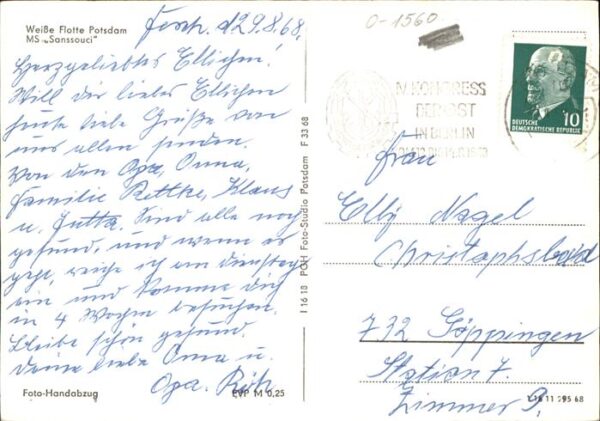 Weiße Flotte Potsdam
MS „Sanssouci"
d. 29.8.68.
Herzgeliebtes Ellichen!
Will dir liebes Ellichen
heute viele Grüße von
uns allen senden.
Von den Opa, Omma,
Familie Rettke, Klaus
u. Jutta. Sind alle noch
gesund, und wenn es
geht, reiche ich am Dienstag
ein und komme dich
in 4 Wochen besuchen.
Bleibe schön gesund.
Deine liebe Omma u.
Opa.
Foto-Handabzug
EVP M 0,25
I 16 18 PGH Foto-Studio Potsdam F 33 68
0-1560
IV. KONGRESS
DER GST
IN BERLIN
DEUTSCHE
DEMOKRATISCHE REPUBLIK
10
Frau
Elly Nagel
Christophsbad
732 Göppingen
Station 7.
Zimmer 9.